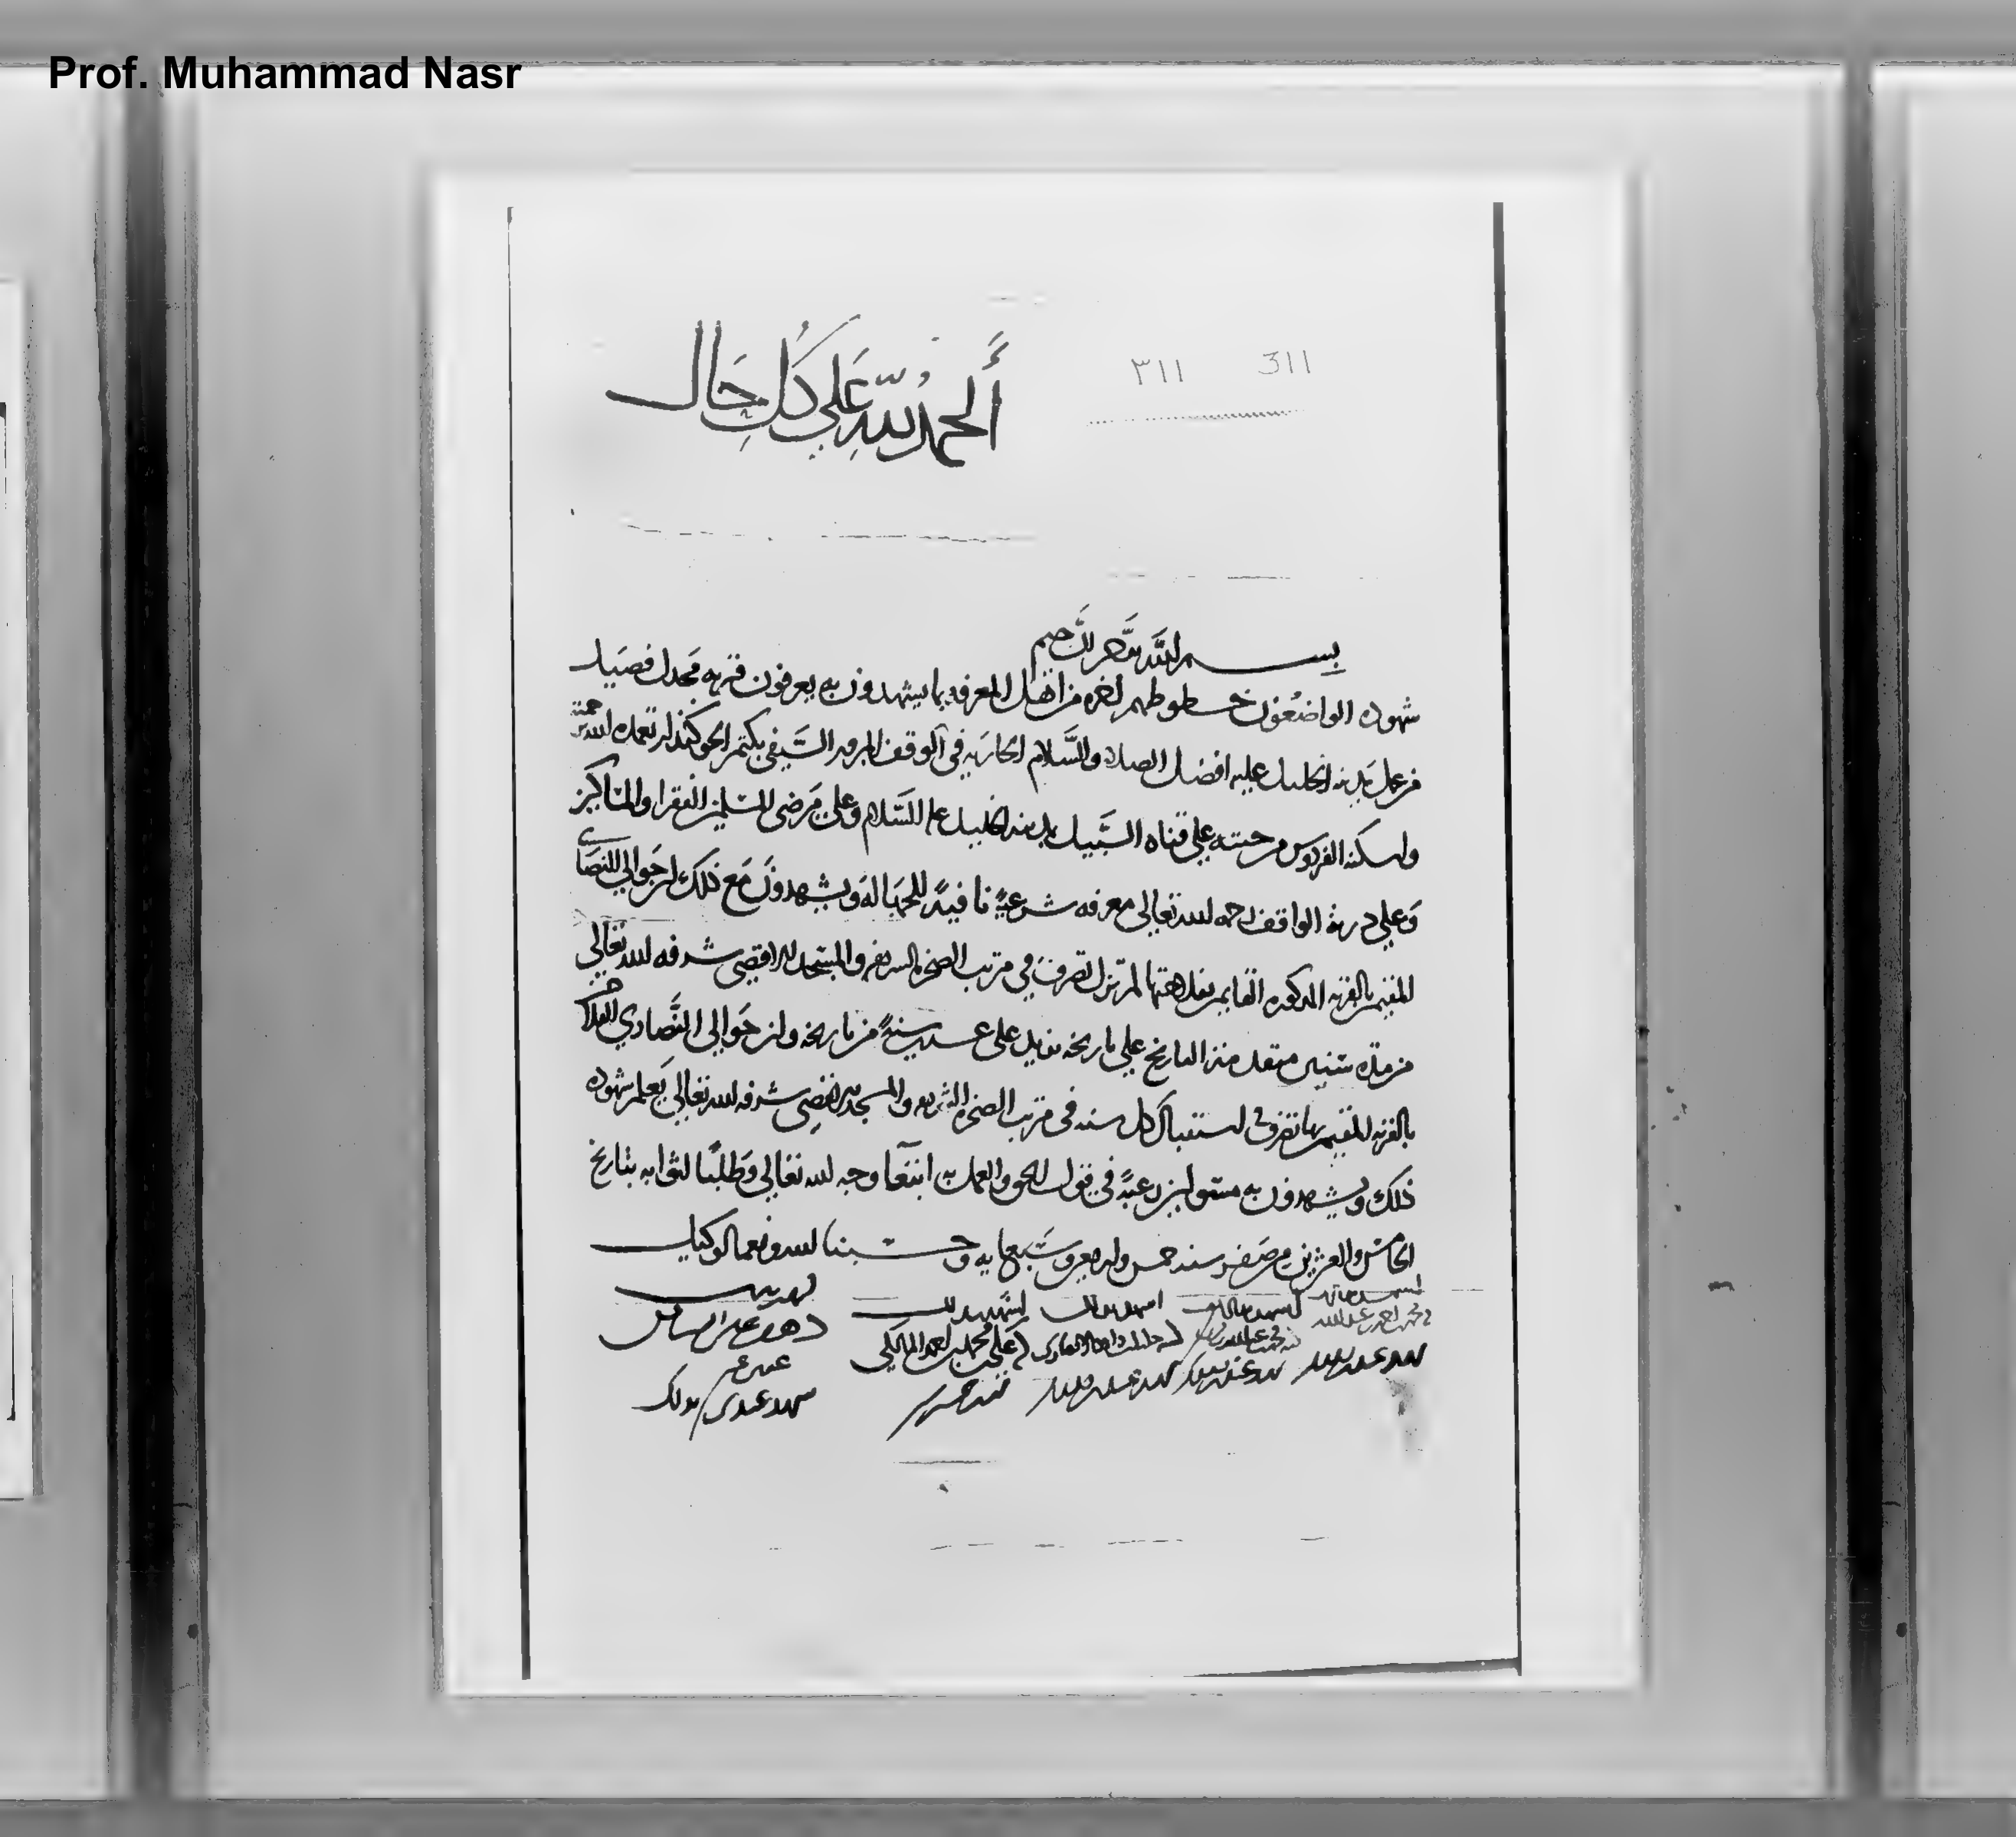 Prof. Muhammad Nasr
311 ٣١١
أَلحمدُ للّهِ عَلي كُلِ حَال
بسم الله الرحمن الرحيم
شهوده الواضعون خطوطهم اخره من اهل المعرفه بما يشهدون به يعرفون قريه مجدل فضيل
من عمل مدينه الخليل عليه افضل الصلاه والسلام الجاريه في الوقف المبرور السيفي بكتمر الجوكندار تغمده الله برحمته
واسكنه الفردوس من جنته علي قناه السبيل بمدينه الخليل عليه السلام وعلي مرضي المسلمين الفقرا والمساكين
وعلي ذريه الواقف رحمه الله تعالي معرفه شرعيه نافيه للجهاله ويشهدون مع ذلك ان جوالي النصاري
المقيمين بالقريه المذكوره القايمين بفلاحتها لم تزل تصرف في مرتب الصخره الشريفه والمسجد الاقصي شرفه الله تعالي
من مده سنين متقدمه التاريخ علي تاريخه تزيد علي عشرين سنه من تاريخه وان جوالي النصاري الفلاحين
بالقريه المقيمين بها تصرف في استقبال كل سنه في مرتب الصخره الشريفه والمسجد الاقصي شرفه الله تعالي يعلم شهوده
ذلك ويشهدون به مسؤلين رعبه في قول الحق والعمل به ابتغا وجه الله تعالي وطلبا لثوابه بتاريخ
الخامس والعشرين من صفر سنه خمس واربعين وسبعمايه وحسبنا الله ونعم الوكيل
اشهد بذلك اشهد بذلك اشهد بذلك
علي بن محمد بن احمد المالكي
شهد عندي بذلك